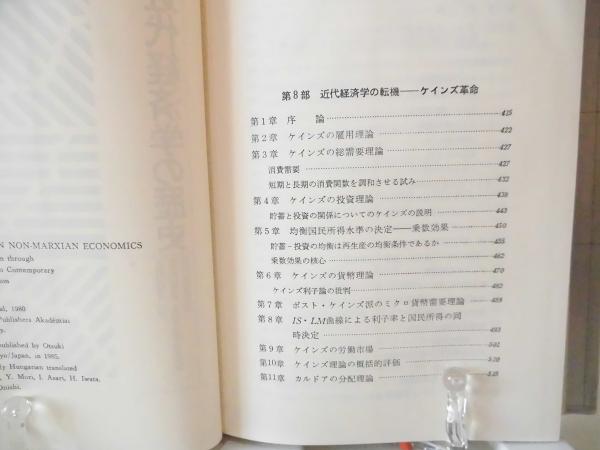 N NON-MARXIAN ECONOMICS
n through
Contemporary
sm
al, 1980
Publishers Akadémian
y.
published by Otsuki
yo/Japan, in 1985.
dly Hungarian translated
, Y. Mori, I. Asari, H. Iwata,
Onishi.
第8部 近代経済学の転機——ケインズ革命
第1章 序 論 415
第2章 ケインズの雇用理論 422
第3章 ケインズの総需要理論 427
消費需要 427
短期と長期の消費関数を調和させる試み 432
第4章 ケインズの投資理論 439
貯蓄と投資の関係についてのケインズの説明 443
第5章 均衡国民所得水準の決定——乗数効果 450
貯蓄-投資の均衡は再生産の均衡条件であるか 455
乗数効果の核心 462
第6章 ケインズの貨幣理論 470
ケインズ利子論の批判 482
第7章 ポスト・ケインズ派のミクロ貨幣需要理論 488
第8章 IS・LM曲線による利子率と国民所得の同
時決定 493
第9章 ケインズの労働市場 502
第10章 ケインズ理論の概括的評価 510
第11章 カルドアの分配理論